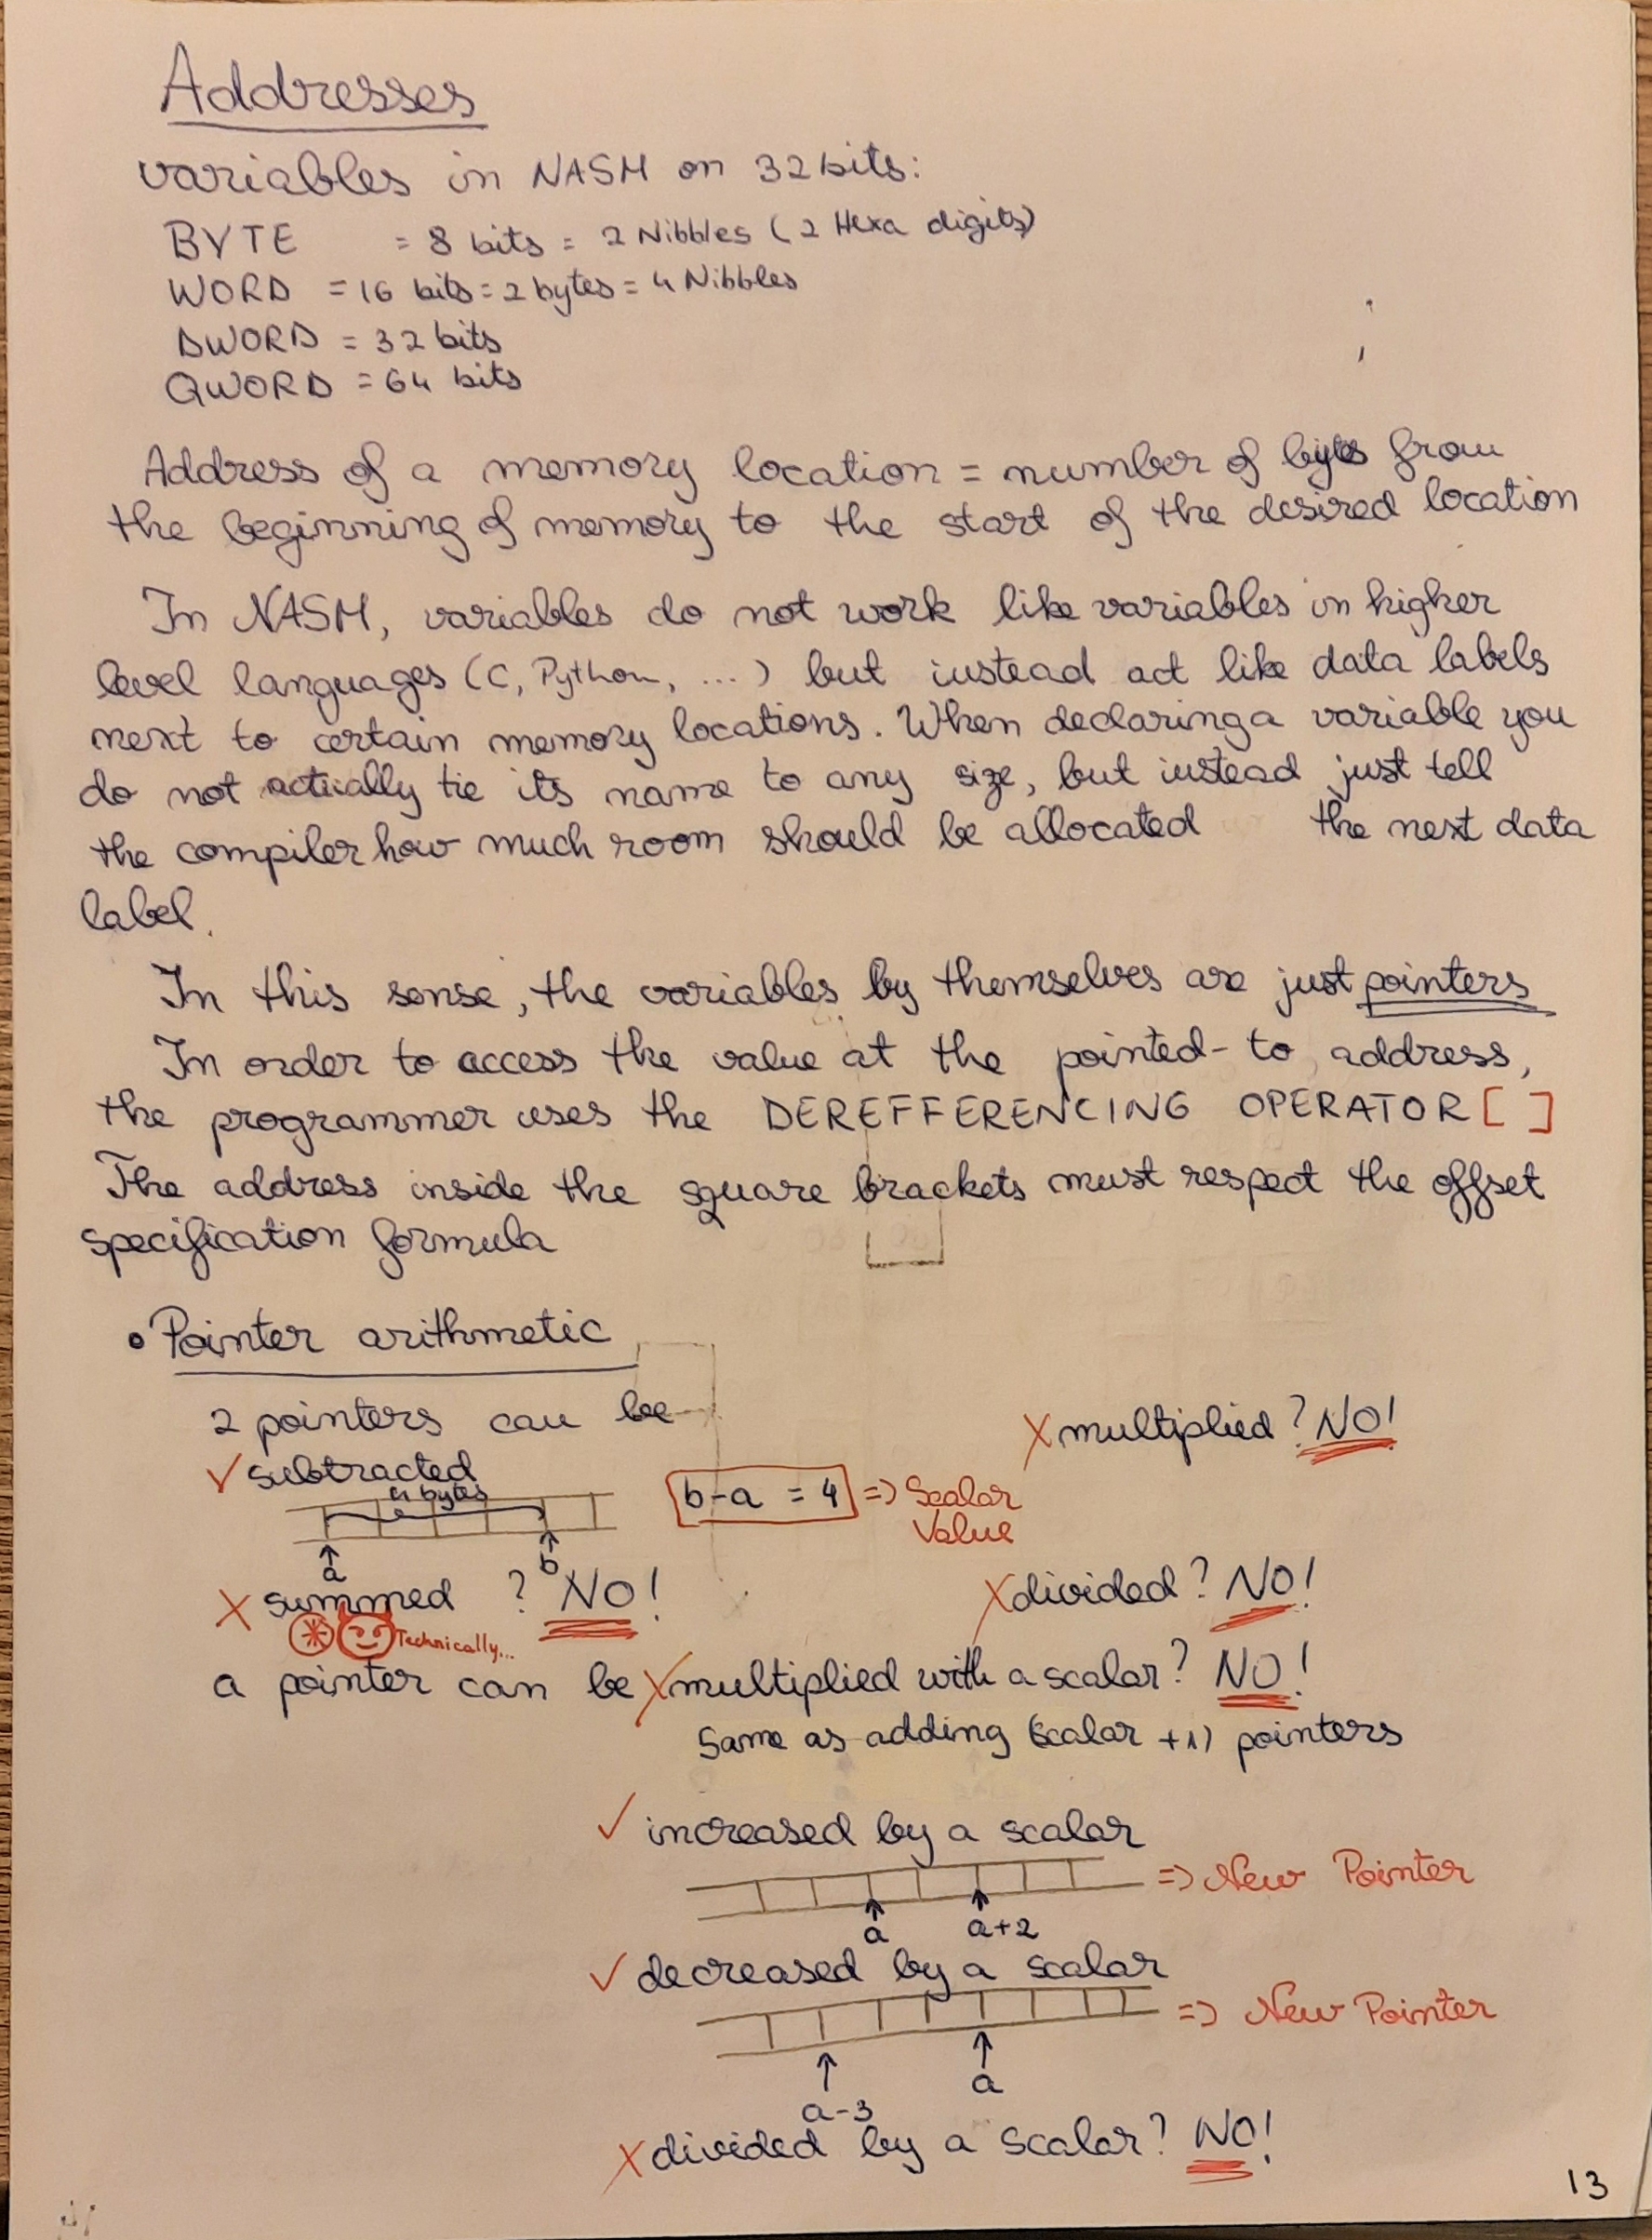 Addresses
variables in NASM on 32 bits:
BYTE = 8 bits = 2 Nibbles (2 Hexa digits)
WORD = 16 bits = 2 bytes = 4 Nibbles
DWORD = 32 bits
QWORD = 64 bits
Address of a memory location = number of bytes from
the beginning of memory to the start of the desired location
In NASM, variables do not work like variables in higher
level languages (C, Python, ...) but instead act like data labels
next to certain memory locations. When declaring a variable you
do not actually tie its name to any size, but instead just tell
the compiler how much room should be allocated the next data
label.
In this sense, the variables by themselves are just pointers
In order to access the value at the pointed-to address,
the programmer uses the DEREFFERENCING OPERATOR [ ]
The address inside the square brackets must respect the offset
specification formula
• Pointer arithmetic
2 pointers can be
X multiplied? NO!
✓ subtracted
4 bytes
b-a = 4 => Scalar
Value
a
b
X summed ? NO!
X divided? NO!
* Technically...
a pointer can be X multiplied with a scalar? NO!
Same as adding (scalar +1) pointers
✓ increased by a scalar
=> New Pointer
a
a+2
✓ decreased by a scalar
=> New Pointer
a
a-3
X divided by a scalar? NO!
13